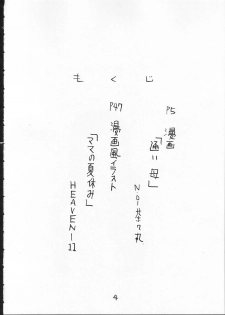 もくじ
P5 漫画
「通い母」
NOI菜々丸
P47 漫画風イラスト
「ママの夏休み」
HEAVEN-11
4